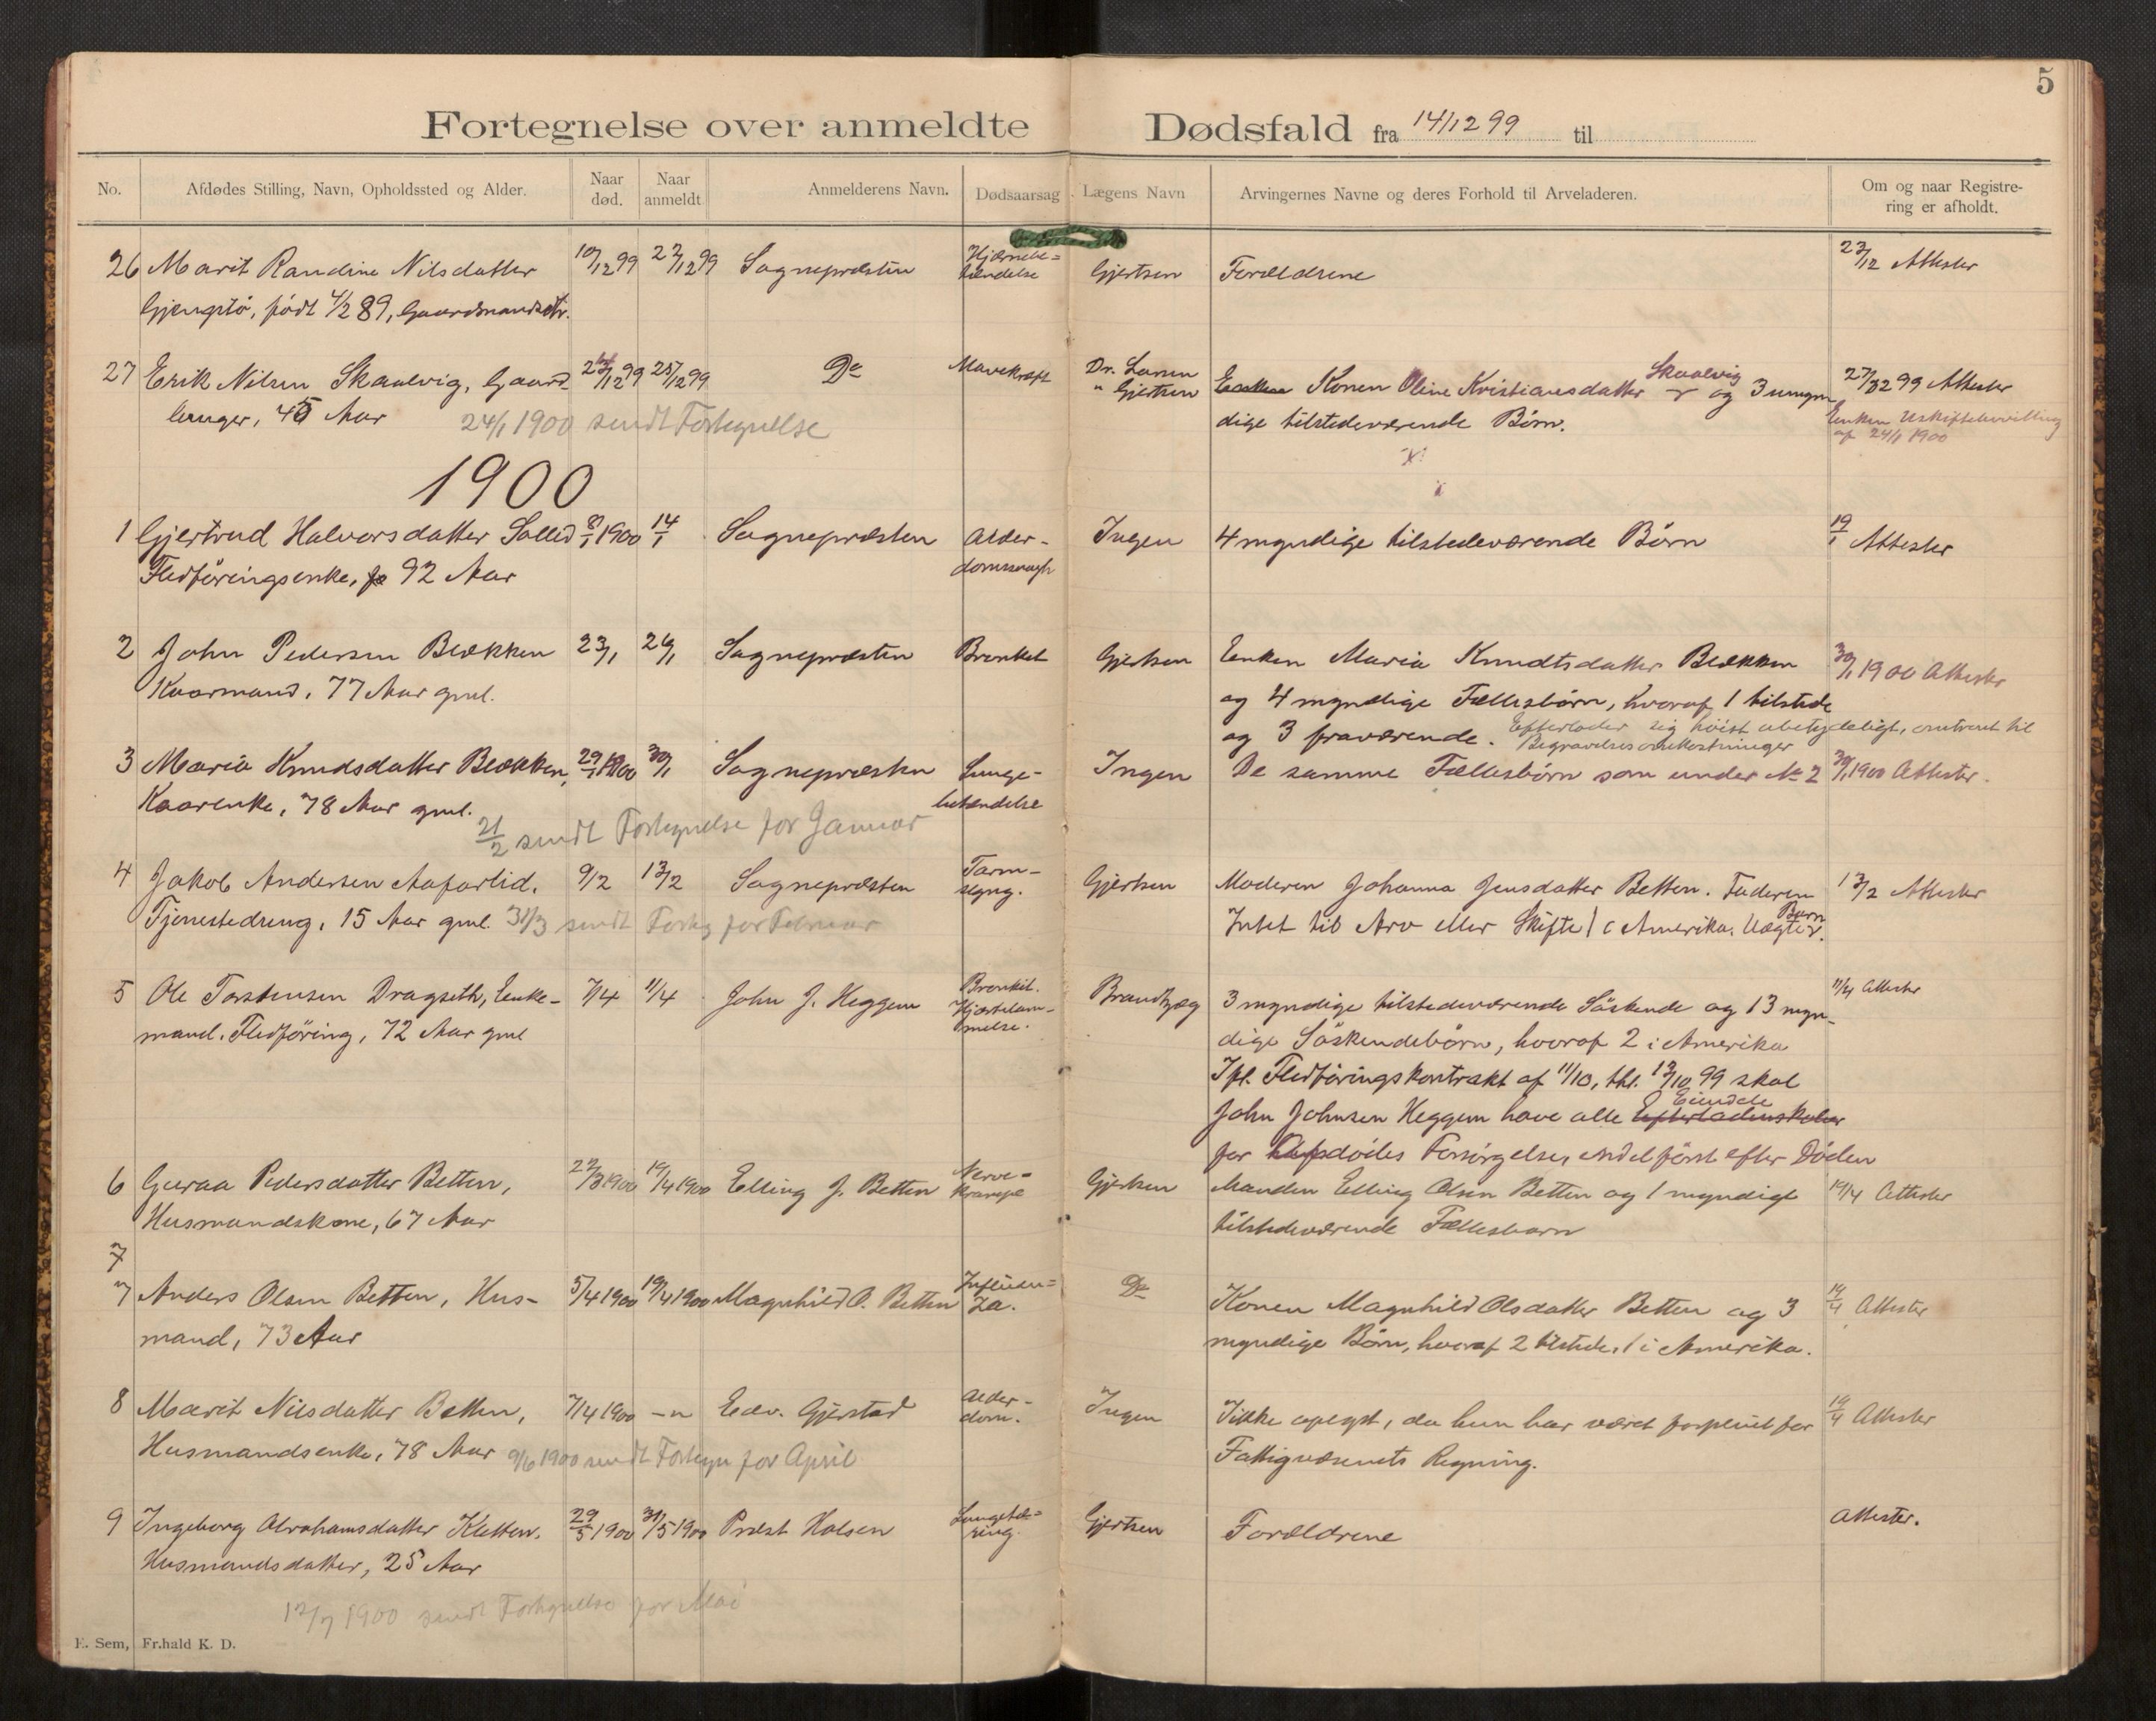 5
Fortegnelse over anmeldte Dødsfald fra 14/12 99 til
No.
Afdødes Stilling, Navn, Opholdssted og Alder.
Naar død.
Naar anmeldt
Anmelderens Navn.
Dødsaarsag
Lægens Navn
Arvingernes Navne og deres Forhold til Arveladeren.
Om og naar Registrering er afholdt.
26 Marit Randine Nilsdatter 10/12 99 22/12 99 Sognepræsten Hjærnebe= Gjertsen Forældrene 23/12 Attester
Gjengstö, födt 4/2 89, Gaardmandsdtr. tændelse
27 Erik Nilsen Skaalvig, Gaard- 24/12 99 25/12 99 Do Mavekræft Dr. Larsen Enken Konen Oline Kristiansdatter Skaalvig og 3 umyn- 27/12 99 Attester
bruger, 45 Aar " Gjertsen dige tilstedeværende Börn. Enken Uskiftebevilling
24/1 1900 sendt Fortegnelse af 24/1 1900
1900
1 Gjertrud Halvorsdatter Sollid 8/1 1900 14/1 Sognepræsten Alder- Ingen 4 myndige tilstedeværende Börn 19/1 Attester
Fledföringsenke, 92 Aar domssvagh
2 John Pedersen Blækken 23/1 26/1 Sognepræsten Bronkit Gjertsen Enken Maria Knudtsdatter Blækken 30/1 1900 Attester
Kaarmand, 77 Aar gml. og 4 myndige Fællesbörn, hvoraf 1 tilstede
og 3 fraværende. Efterlader sig höist ubetydeligt, omtrent til
Begravelsesomkostninger
3 Maria Knudsdatter Blækken, 29/1 1900 30/1 Sognepræsten Lunge- Ingen De samme Fællesbörn som under No 2 30/1 1900 Attester.
Kaarenke, 78 Aar gml. betændelse
21/2 sendt Fortegnelse for Januar
4 Jakob Andersen Aafarlid. 9/2 13/2 Sognepræsten Tarm- Gjertsen Moderen Johanna Jensdatter Betten. Faderen 13/2 Attester
Tjenestedreng, 15 Aar gml. slyng. Intet til Arv eller Skifte / i Amerika. Uægte Barn.
31/3 sendt Forteg for Februar
5 Ole Torstensen Dragseth, Enke- 7/4 11/4 John J. Heggem Bronkit. Brandtzæg 3 myndige tilstedeværende Söskende og 13 myn- 11/4 Attester
mand. Fledföring, 72 Aar gml Hjertelam- dige Söskendebörn, hvoraf 2 i Amerika
melse. Ifl. Fledföringskontrakt af 11/10, thl. 13/10 99 skal
John Johnsen Heggem have alle Efterladenskaber Eiendele
for Afdödes Forsörgelse, en del först efter Döden
6 Guraa Pedersdatter Betten, 22/3 1900 19/4 1900 Elling J. Betten Nerve- Gjertsen Manden Elling Olsen Betten og 1 myndigt 19/4 Attester
Husmandskone, 67 Aar krampe tilstedeværende Fællesbarn
7
7 Anders Olsen Betten, Hus- 5/4 1900 19/4 1900 Magnhild O. Betten Influen= Do Konen Magnhild Olsdatter Betten og 3 19/4 Attester
mand, 73 Aar za. myndige Börn, hvoraf 2 tilstede, 1 i Amerika.
8 Marit Nilsdatter Betten, 7/4 1900 -"- Edv. Gjerstad Alder- Ingen Ikke opegt, da hun har været forpleiet for 19/4 Attester
Husmandsenke, 78 Aar dom. Fattigvæsenets Regning.
9/6 1900 sendt Fortegn for April
9 Ingeborg Abrahamsdatter Kletten. 29/5 1900 31/5 1900 Præst Holsen Lungetæ= Gjertsen Forældrene Attester.
Husmandsdatter, 25 Aar ring.
12/7 1900 sendt Fortegnelse for Mai
E. Sem, Fr.hald K. D.